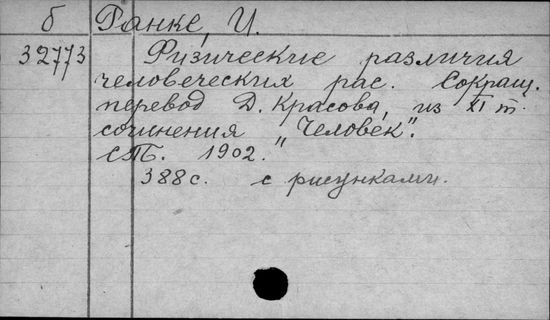 б Ранке, И.
32773 Физические различия
человеческих рас. Сокращ.
перевод Д. Красова, из XI т.
сочинения „Человек".
СПБ. 1902.
388 с. с рисунками.